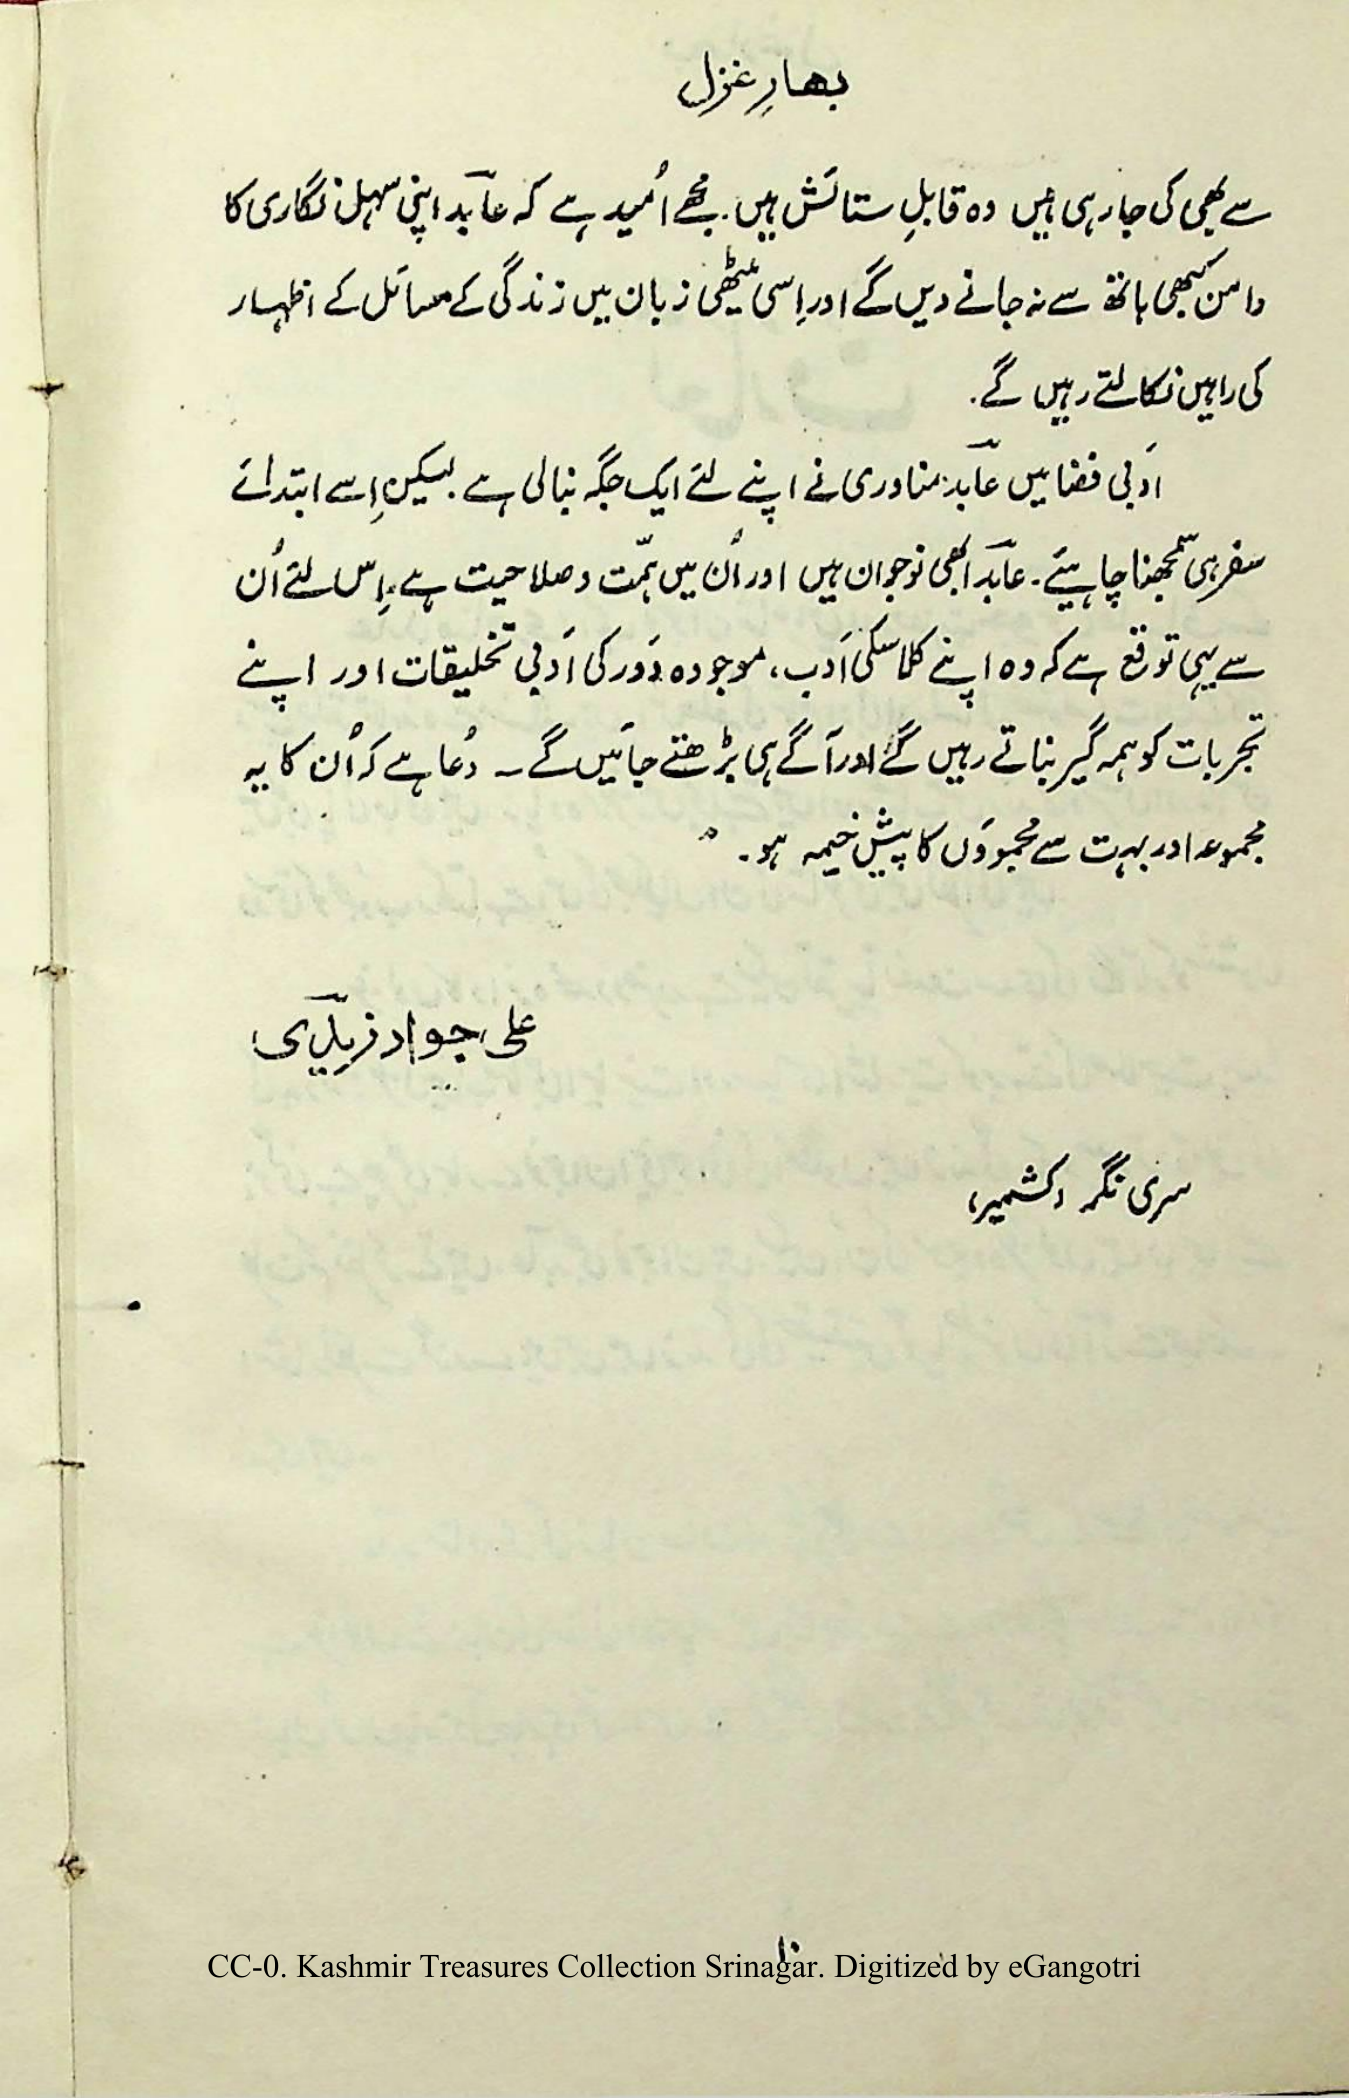 بھارِ غزل
سے بھی کی جا رہی ہیں وہ قابلِ ستائش ہیں۔ مجھے اُمید ہے کہ عابدؔ اپنی سہل نگاری کا
دامن کبھی ہاتھ سے نہ جانے دیں گے اور اِسی میٹھی زبان میں زندگی کے مسائل کے اظہار
کی راہیں نکالتے رہیں گے۔
اَدبی فضا میں عابدؔ مناوری نے اپنے لئے ایک جگہ بنالی ہے۔ لیکن اِسے ابتدائے
سفر ہی سمجھنا چاہیئے۔ عابدؔ ابھی نوجوان ہیں اور اُن میں ہمّت و صلاحیت ہے۔ اِس لئے اُن
سے یہی توقع ہے کہ وہ اپنے کلاسکی اَدب، موجودہ دَور کی اَدبی تخلیقات اور اپنے
تجربات کو ہمہ گیر بناتے رہیں گے اور آگے ہی بڑھتے جائیں گے۔ دُعا ہے کہ اُن کا یہ
مجموعہ اور بہت سے مجموؤں کا پیش خیمہ ہو۔
علی جواد زیدؔی
سری نگر (کشمیر)
۱۰
CC-0. Kashmir Treasures Collection Srinagar. Digitized by eGangotri